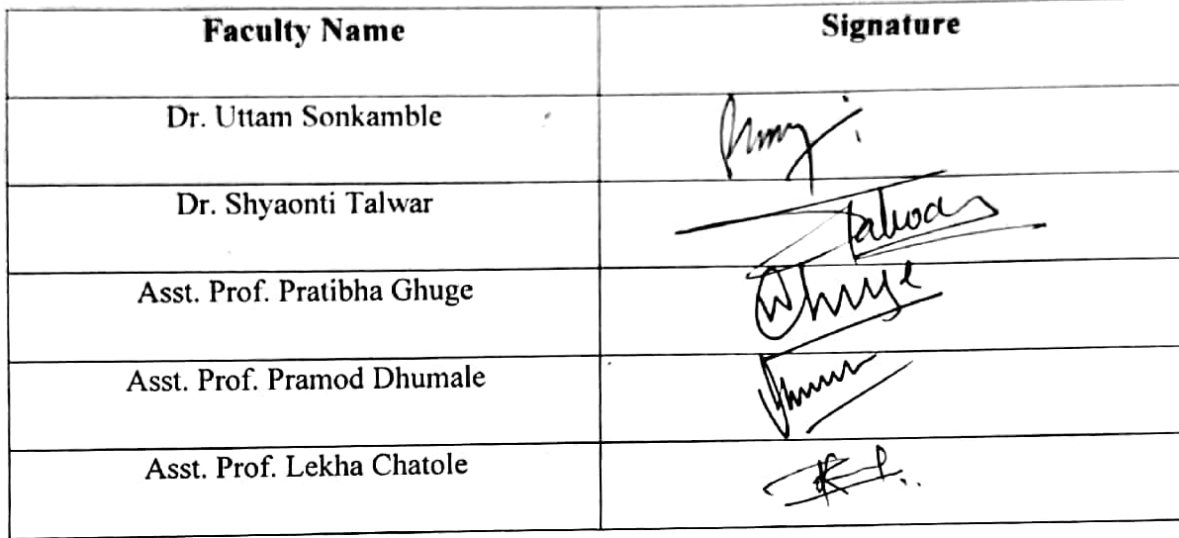 Faculty Name Signature
Dr. Uttam Sonkamble
Dr. Shyaonti Talwar
Asst. Prof. Pratibha Ghuge
Asst. Prof. Pramod Dhumale
Asst. Prof. Lekha Chatole